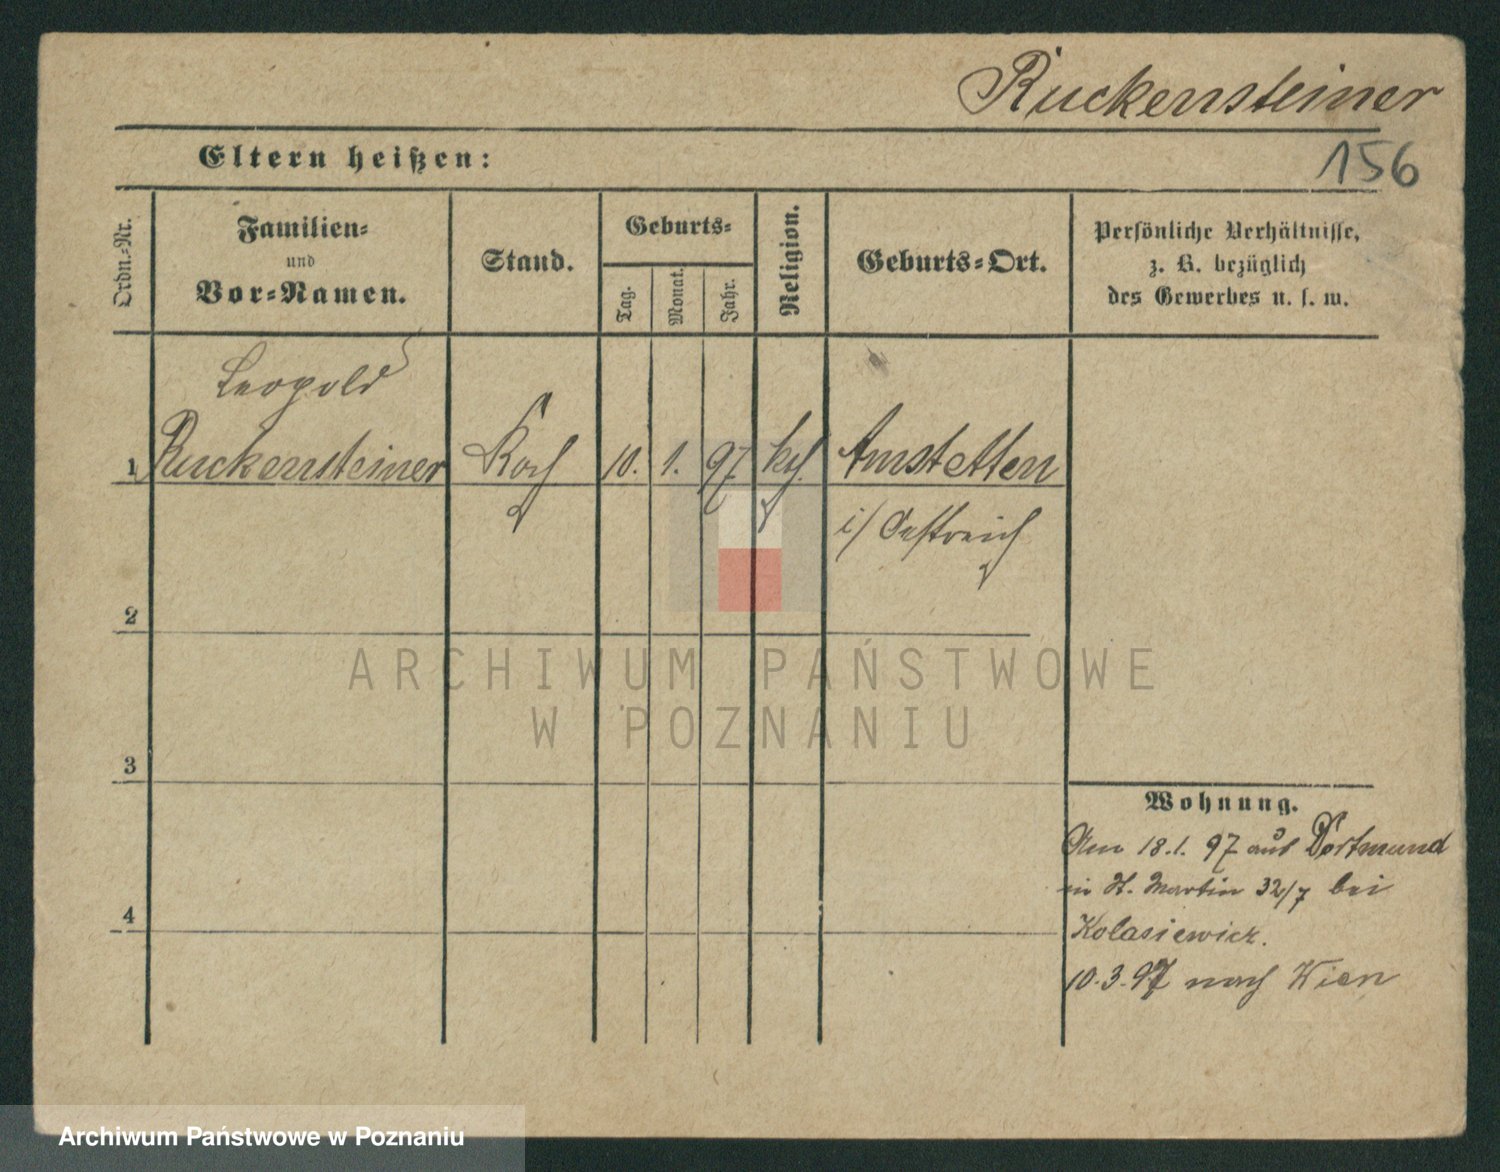 Ruckensteiner
156
Eltern heißen:
Ordn.-Nr.
Familien-
und
Vor-Namen.
Stand.
Geburts-
Tag.
Monat.
Jahr.
Religion.
Geburts-Ort.
Persönliche Verhältnisse,
z. B. bezüglich
des Gewerbes u. s. w.
Leopold
1 Ruckensteiner Koch 10. 1. 97 kth. Amstetten
i/ Oestreich
2
ARCHIWUM PAŃSTWOWE
W POZNANIU
3
Wohnung.
Am 18.1. 97 aus Dortmund
in St. Martin 32/7 bei
4
Kolasiewicz.
10.3.97 nach Wien
Archiwum Państwowe w Poznaniu